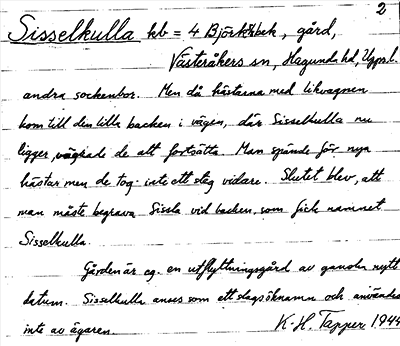 2
Sisselkulla kb = 4 Björkbek, gård,
Västeråkers sn, Hagunda hd, Upps. l.
andra sockenbor. Men då hästarna med likvagnen
kom till den lilla backen i vägen, där Sisselkulla nu
ligger, vägrade de att fortsätta. Man spände för nya
hästar men de tog inte ett steg vidare. Slutet blev, att
man måste begrava Sissla vid backen, som fick namnet
Sisselkulla.
Gården är eg. en utflyttningsgård av ganska nytt
datum. Sisselkulla anses som ett slags öknamn och användes
inte av ägaren.
K.-H. Tapper 1944